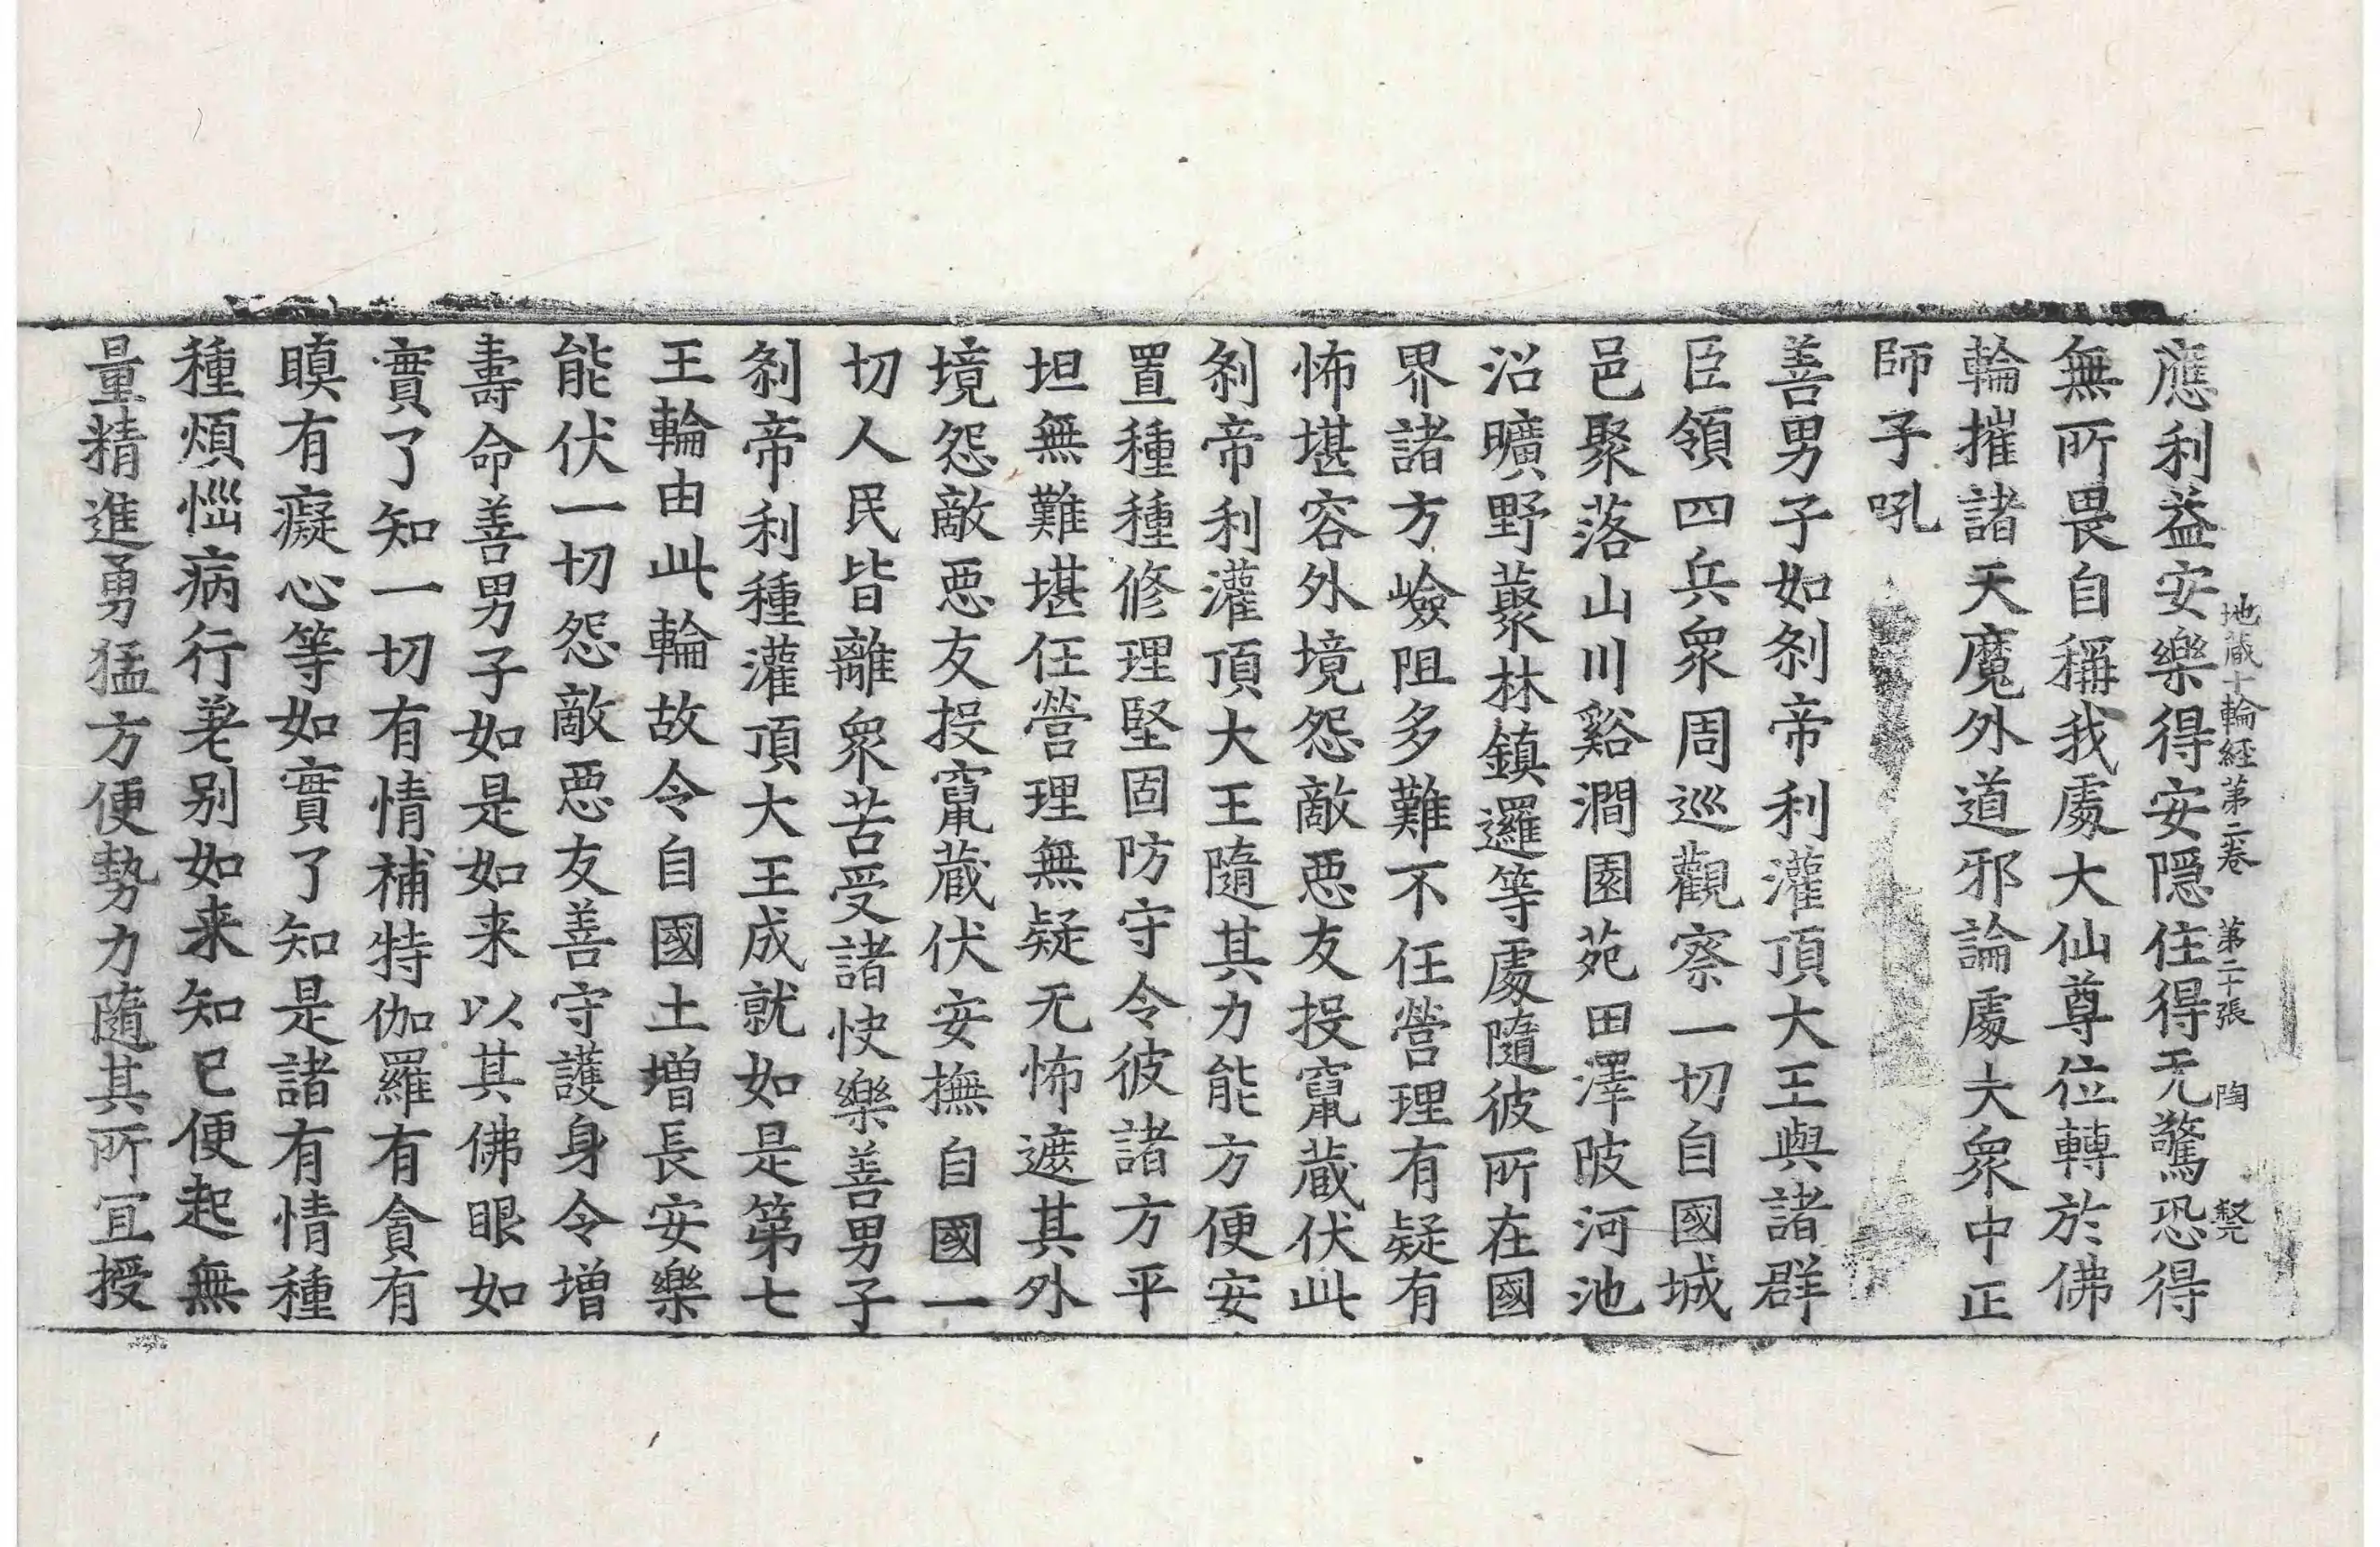 地蔵十輪経第二卷　第二十張　陶
應利益安樂得安隱住得无驚恐得
無所畏自稱我處大仙尊位轉於佛
輪摧諸天魔外道邪論處大衆中正
師子吼
善男子如刹帝利灌頂大王與諸群
臣領四兵衆周巡觀察一切自國城
邑聚落山川谿澗園苑田澤陂河池
沼曠野藂林鎮邏等處隨彼所在國
界諸方嶮阻多難不任營理有疑有
怖堪容外境怨敵惡友投竄蔵伏此
刹帝利灌頂大王隨其力能方便安
置種種修理堅固防守令彼諸方平
坦無難堪任營理無疑无怖遮其外
境怨敵惡友投竄蔵伏安撫自國一
切人民皆離衆苦受諸快樂善男子
刹帝利種灌頂大王成就如是第七
王輪由此輪故令自國土增長安樂
能伏一切怨敵惡友善守護身令增
壽命善男子如是如来以其佛眼如
實了知一切有情補特伽羅有貪有
瞋有癡心等如實了知是諸有情種
種煩惱病行差别如来知已便起無
量精進勇猛方便勢力隨其所冝授